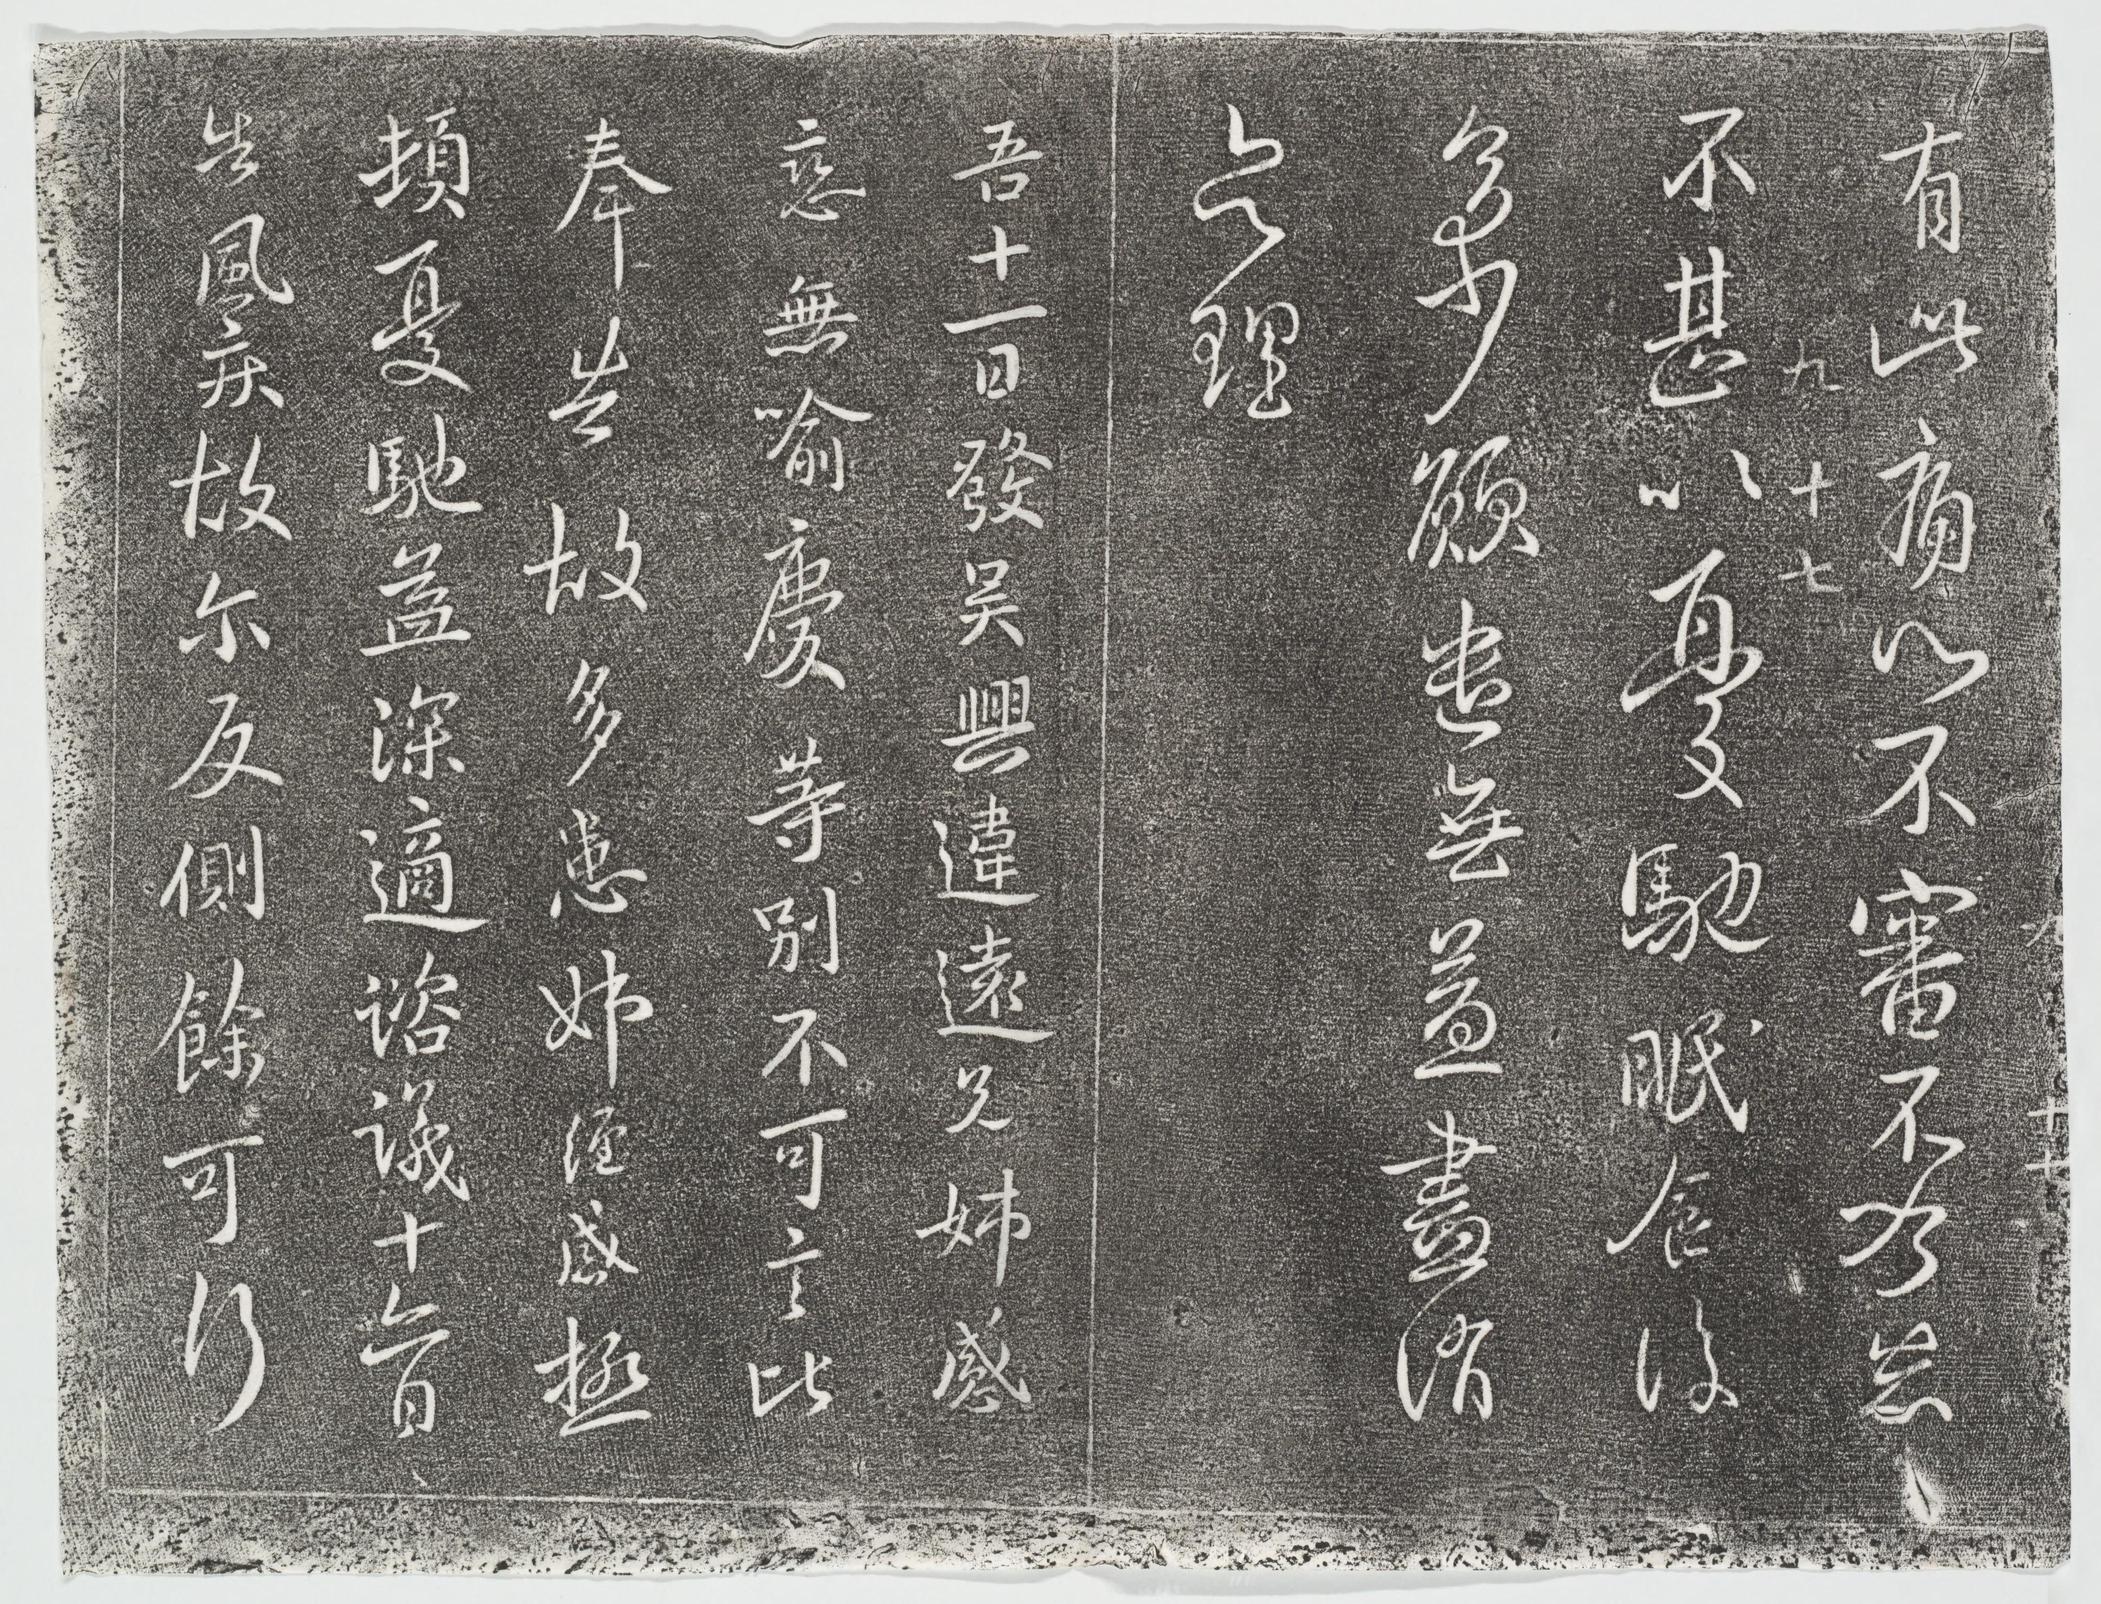 有此痛以不審不
九 十七
不甚以憂馳眠食復
多少願遣無益盡消
息之理
吾十一日發吳興違遠兄姊感
戀無喻慶等別不可言比
奉告故多患姊經感極
頓憂馳益深適諮議十六日
告風疾故尔反側餘可行